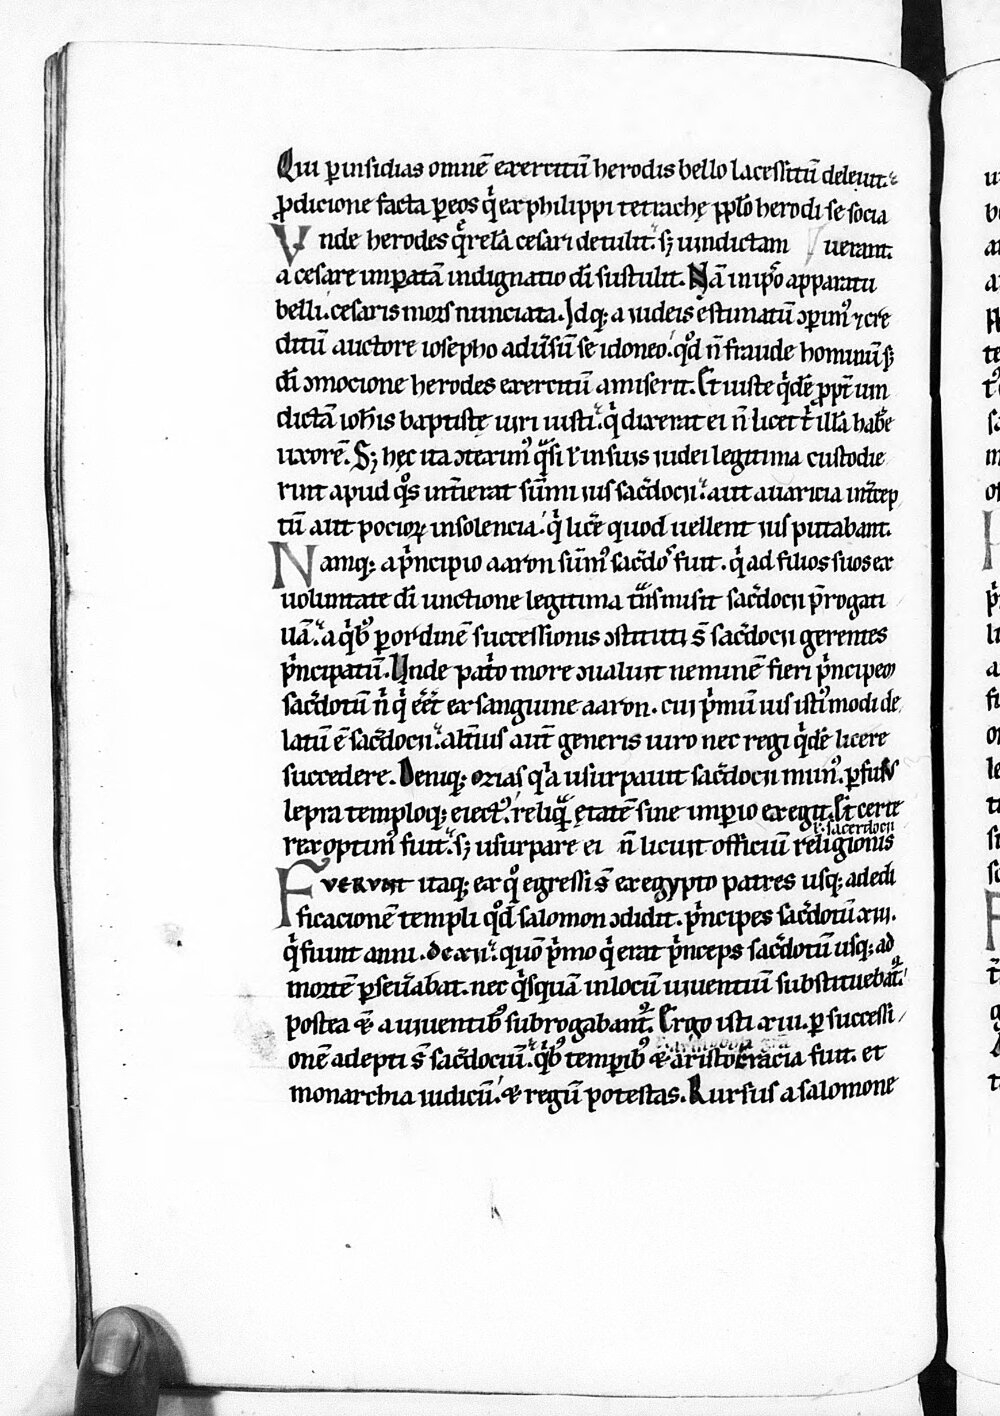 Qui p̱insidias omnē exercitū herodis bello lacessitū deleuit.
ꝓdicione facta p̱eos q̇ ex philippi tetrachę pp̄lo herodi se socia
Vnde herodes q̄relā cesari detulit. sꝫ uindictam uerant.
a cesare imp̱atā indignatio dī sustulit. Nā in ip̄o apparatu
belli. cesaris mors nunciata. Idqꝫ a iudeis estimatū ꝯp̱im᷒ ⁊ cre
ditū auctore iosepho adūsū se idoneo. qd̄ n̄ fraude hominū sꝫ
dī ꝯmocione herodes exercitū amiserit. Et iuste q̇dē ꝓpt̄ uin
dictā ioh̄is baptistę uiri iusti. q̇ dixerat ei n̄ licet ṫ illā hab̄e
uxorē. Sꝫ hęc ita ꝯtexim᷒ q̄si t̄ in suis iudei legitima custodie
rint apud q̊s int̄ierat sūmi ius sac̄docii. aut auaricia int̄cep
tū aut pocioꝝ insolencia. q̇ licē quod uellent ius putabant.
Namqꝫ a ṗncipio aaron sūm᷒ sac̄dos fuit. q̇ ad filios suos ex
uoluntate dī unctione legitima tn̄smisit sac̄docii p̄rogati
uā. a q̇b᷒ p̱ordinē successionis ꝯstituti s̄ sac̄docii gerentes
ṗncipatū. Unde pat̊o more ꝯualuit neminē fieri ṗncipem
sac̄dotū n̄ q̇ eēt ex sanguine aaron. cui ṗmū ius isti᷒modi de
latū ē sac̄docii. alt̄ius aut̄ generis uiro nec regi q̇dē licere
succedere. Deniqꝫ ozias q̇a usurpauit sac̄docii mun᷒. p̱fus᷒
lepra temploqꝫ eiect᷒. reliq̄ ętatē sine imp̱io exegit. Et certe
ł sacerdocii
rex optim᷒ fuit. sꝫ usurpare ei n̄ licuit officiū religionis
FVERVNT itaqꝫ ex q̊ egressi s̄ ex egypto patres usqꝫ ad edi
ficacionē templi qd̄ salomon ꝯdidit. ṗncipes sac̄dotū xiii.
q̇ fiunt anni. dcxii. quō ṗmo q̇ erat ṗnceps sac̄dotū usqꝫ ad
mortē p̱seūabat. nec q̇squā in locū uiuentiū substituebat᷑.
postea & a uiuentib᷒ subrogabant᷑. Ergo isti xiii. p̱ successi
onē adepti s̄ sac̄dociū. q̇b᷒ tempib᷒ & aristocracia fuit. et
monarchia iudiciū. & regū potestas. Rursus a salomone